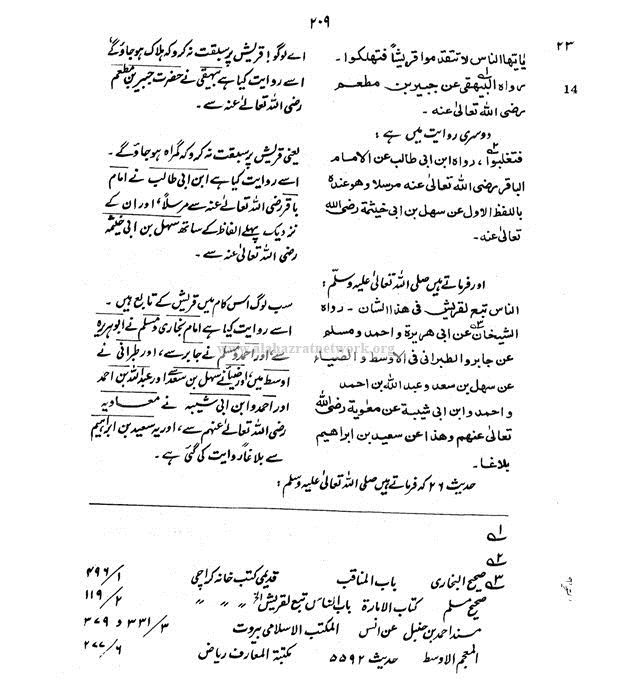 ٢٠٩
٢٣
14
یایتھا الناس لا تتقدموا قریشًا فتھلکوا۔
رواہ البیھقی عن جبیر بن مطعم
رضی اللہ تعالٰی عنہ۔
اے لوگو! قریش پر سبقت نہ کرو کہ ہلاک ہوجاؤگے
اسے روایت کیا ہے بیہقی نے حضرت جبیر بن مطعم
رضی اللہ تعالٰی عنہ سے۔
دوسری روایت میں ہے :
فتغلبوا، رواہ ابن ابی طالب عن الامام
الباقر رضی اللہ تعالٰی عنہ مرسلا وھو عندہ
باللفظ الاول عن سھل بن ابی خیثمة رضی اللہ
تعالٰی عنہ۔
یعنی قریش پر سبقت نہ کرو کہ گمراہ ہوجاؤگے۔
اسے روایت کیا ہے ابن ابی طالب نے امام
باقر رضی اللہ تعالٰے عنہ سے مرسلاً، اور ان کے
نزدیک پہلے الفاظ کے ساتھ سہل بن ابی خیثمہ
رضی اللہ تعالٰی عنہ سے۔
اور فرماتے ہیں صلی اللہ تعالٰی علیہ وسلّم :
الناس تبع لقریش فی ھذا الشان۔ رواہ
الشیخان عن ابی ھریرة و احمد و مسلم
عن جابر و الطبرانی فی الاوسط و الضیاء
عن سھل بن سعد و عبد اللہ بن احمد
و احمد و ابن ابی شیبة عن معٰویة رضی اللہ
تعالٰی عنھم وھذا عن سعید بن ابراھیم
بلاغا۔
سب لوگ اس کام میں قریش کے تابع ہیں۔
اسے روایت کیا ہے امام بخاری و مسلم نے ابوہریرہ
سے، اور احمد و مسلم نے جابر سے، اور طبرانی نے
اوسط میں، اور ضیأ نے سہل بن سعد سے اور عبداللہ بن احمد
اور احمد و ابن ابی شیبہ نے معاویہ
رضی اللہ تعالٰے عنہم سے، اور یہ سعید بن ابراہیم
سے بلاغاً روایت کی گئی ہے۔
www.alahazratnetwork.org
حدیث ۲۶ کہ فرماتے ہیں صلی اللہ تعالٰی علیہ وسلم :
۱؎
۲؎
۳؎ صحیح البخاری باب المناقب قدیمی کتب خانہ کراچی ۱/ ۴۹۶
صحیح مسلم کتاب الامارة باب الناس تبع لقریش الخ ״ ״ ״ ۲/ ۱۱۹
مسند احمد بن حنبل عن انس المکتب الاسلامی بیروت ۳/ ۳۳۱ و ۳۷۹
المعجم الاوسط حدیث ۵۵۹۲ مکتبة المعارف ریاض ۶/ ۲۷۷